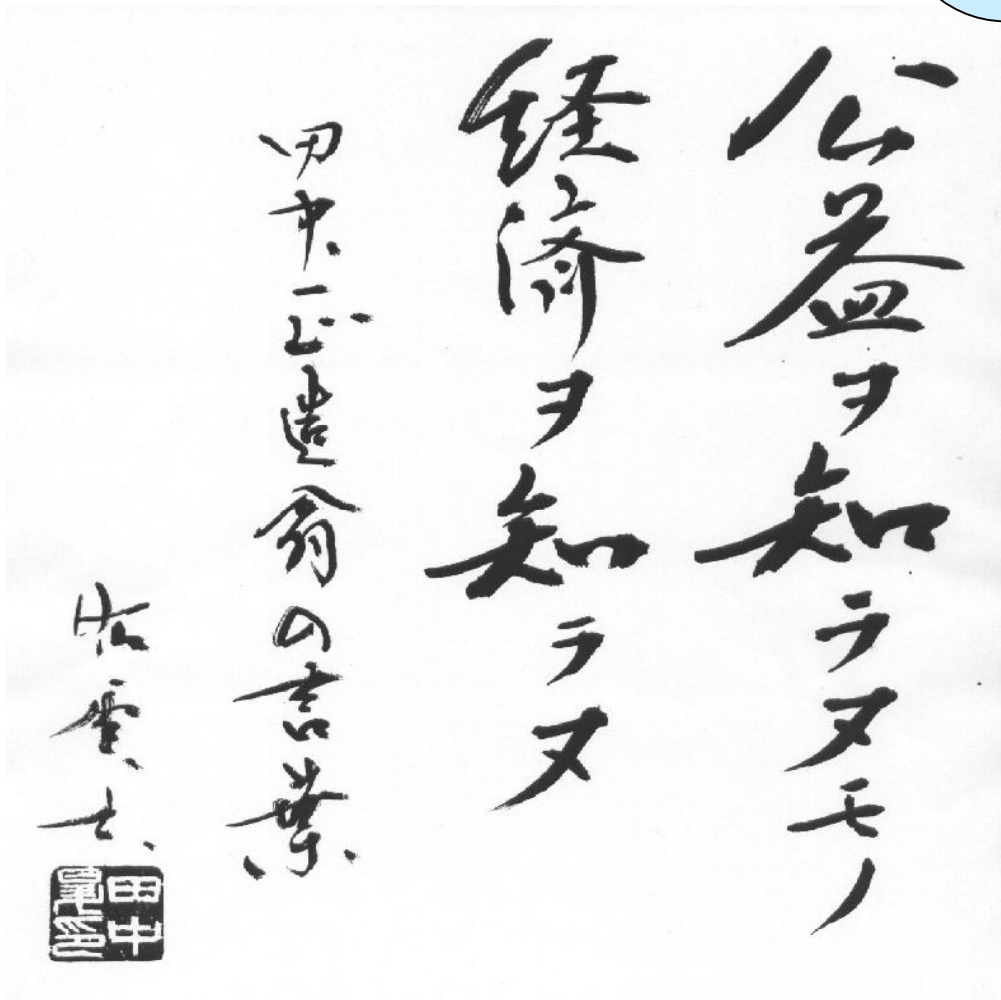 公益ヲ知ラヌモノ
経済ヲ知ラヌ
田中正造翁の言葉
田中